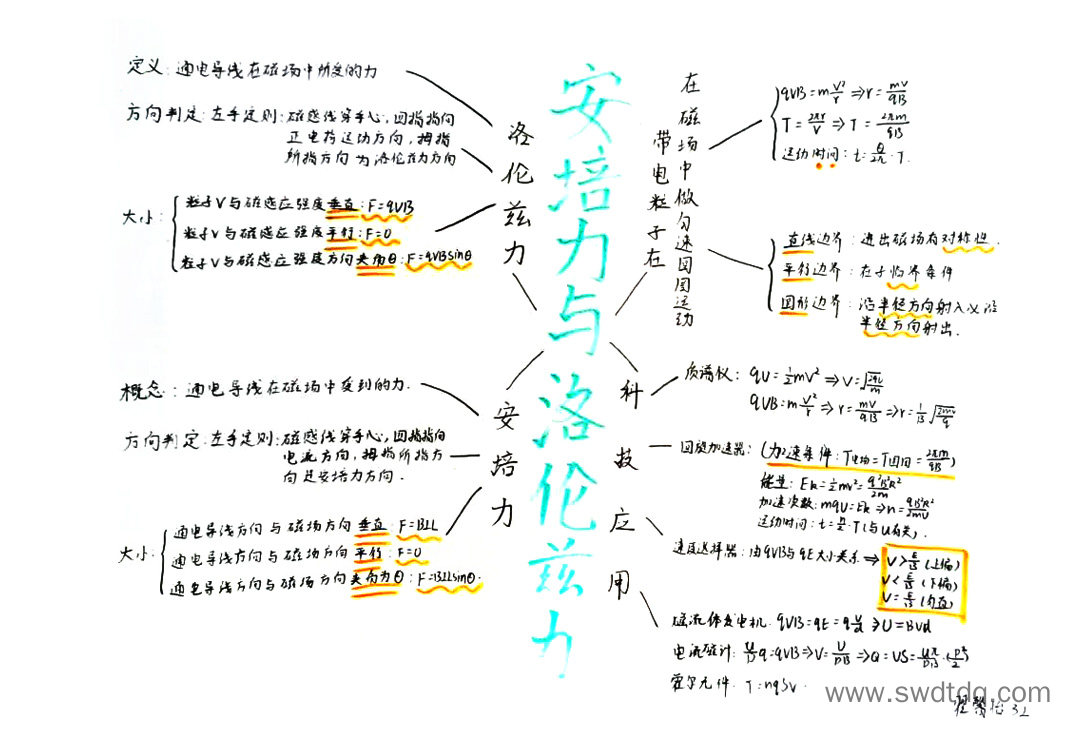 安培力与洛伦兹力
洛伦兹力
定义：通电导线在磁场中所受的力
方向判定：左手定则：磁感线穿手心，四指指向
正电荷运动方向，拇指
所指方向为洛伦兹力方向
大小：
粒子V与磁感应强度垂直：F=qVB
粒子V与磁感应强度平行：F=0
粒子V与磁感应强度方向夹角θ：F=qVBsinθ
安培力
概念：通电导线在磁场中受到的力.
方向判定：左手定则：磁感线穿手心，四指指向
电流方向，拇指所指方
向是安培力方向.
大小：
通电导线方向与磁场方向垂直：F=BIL
通电导线方向与磁场方向平行：F=0
通电导线方向与磁场方向夹角为θ：F=BILsinθ.
带电粒子在
在磁场中做匀速圆周运动
qVB=mV²/r⇒r=mV/qB
T=2πr/V⇒T=2πm/qB
运动时间：t=θ/2π·T.
直线边界：进出磁场有对称性.
平行边界：存在临界条件
圆形边界：沿半径方向射入必沿
半径方向射出.
科技应用
质谱仪：qU=½mV²⇒V=√(2qU/m)
qVB=mV²/r⇒r=mV/qB⇒r=1/B√(2mU/q)
回旋加速器：(加速条件：T电场=T回旋=2πm/qB)
能量：Ek=½mv²=q²B²R²/2m
加速次数：nqU=Ek⇒n=qB²R²/2mU
运动时间：t=n/2·T(与U有关).
速度选择器：由qVB与qE大小关系⇒
V>E/B(上偏)
V<E/B(下偏)
V=E/B(匀直)
磁流体发电机.qVB=qE=qU/d⇒U=BVd
电流磁计：U/D q=qVB⇒V=U/DB⇒Q=VS=
霍尔元件.I=nqSv.
www.swdtdq.com